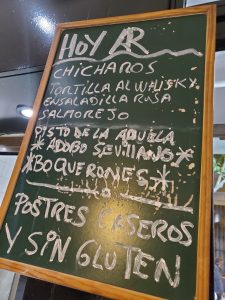 HOY AR
CHICHAROS
TORTILLA AL WHISKY
ENSALADILLA RUSA
SALMOREJO
PISTO DE LA ABUELA
*ADOBO SEVILLANO*
*BOQUERONES*
POSTRES CASEROS
Y SIN GLUTEN